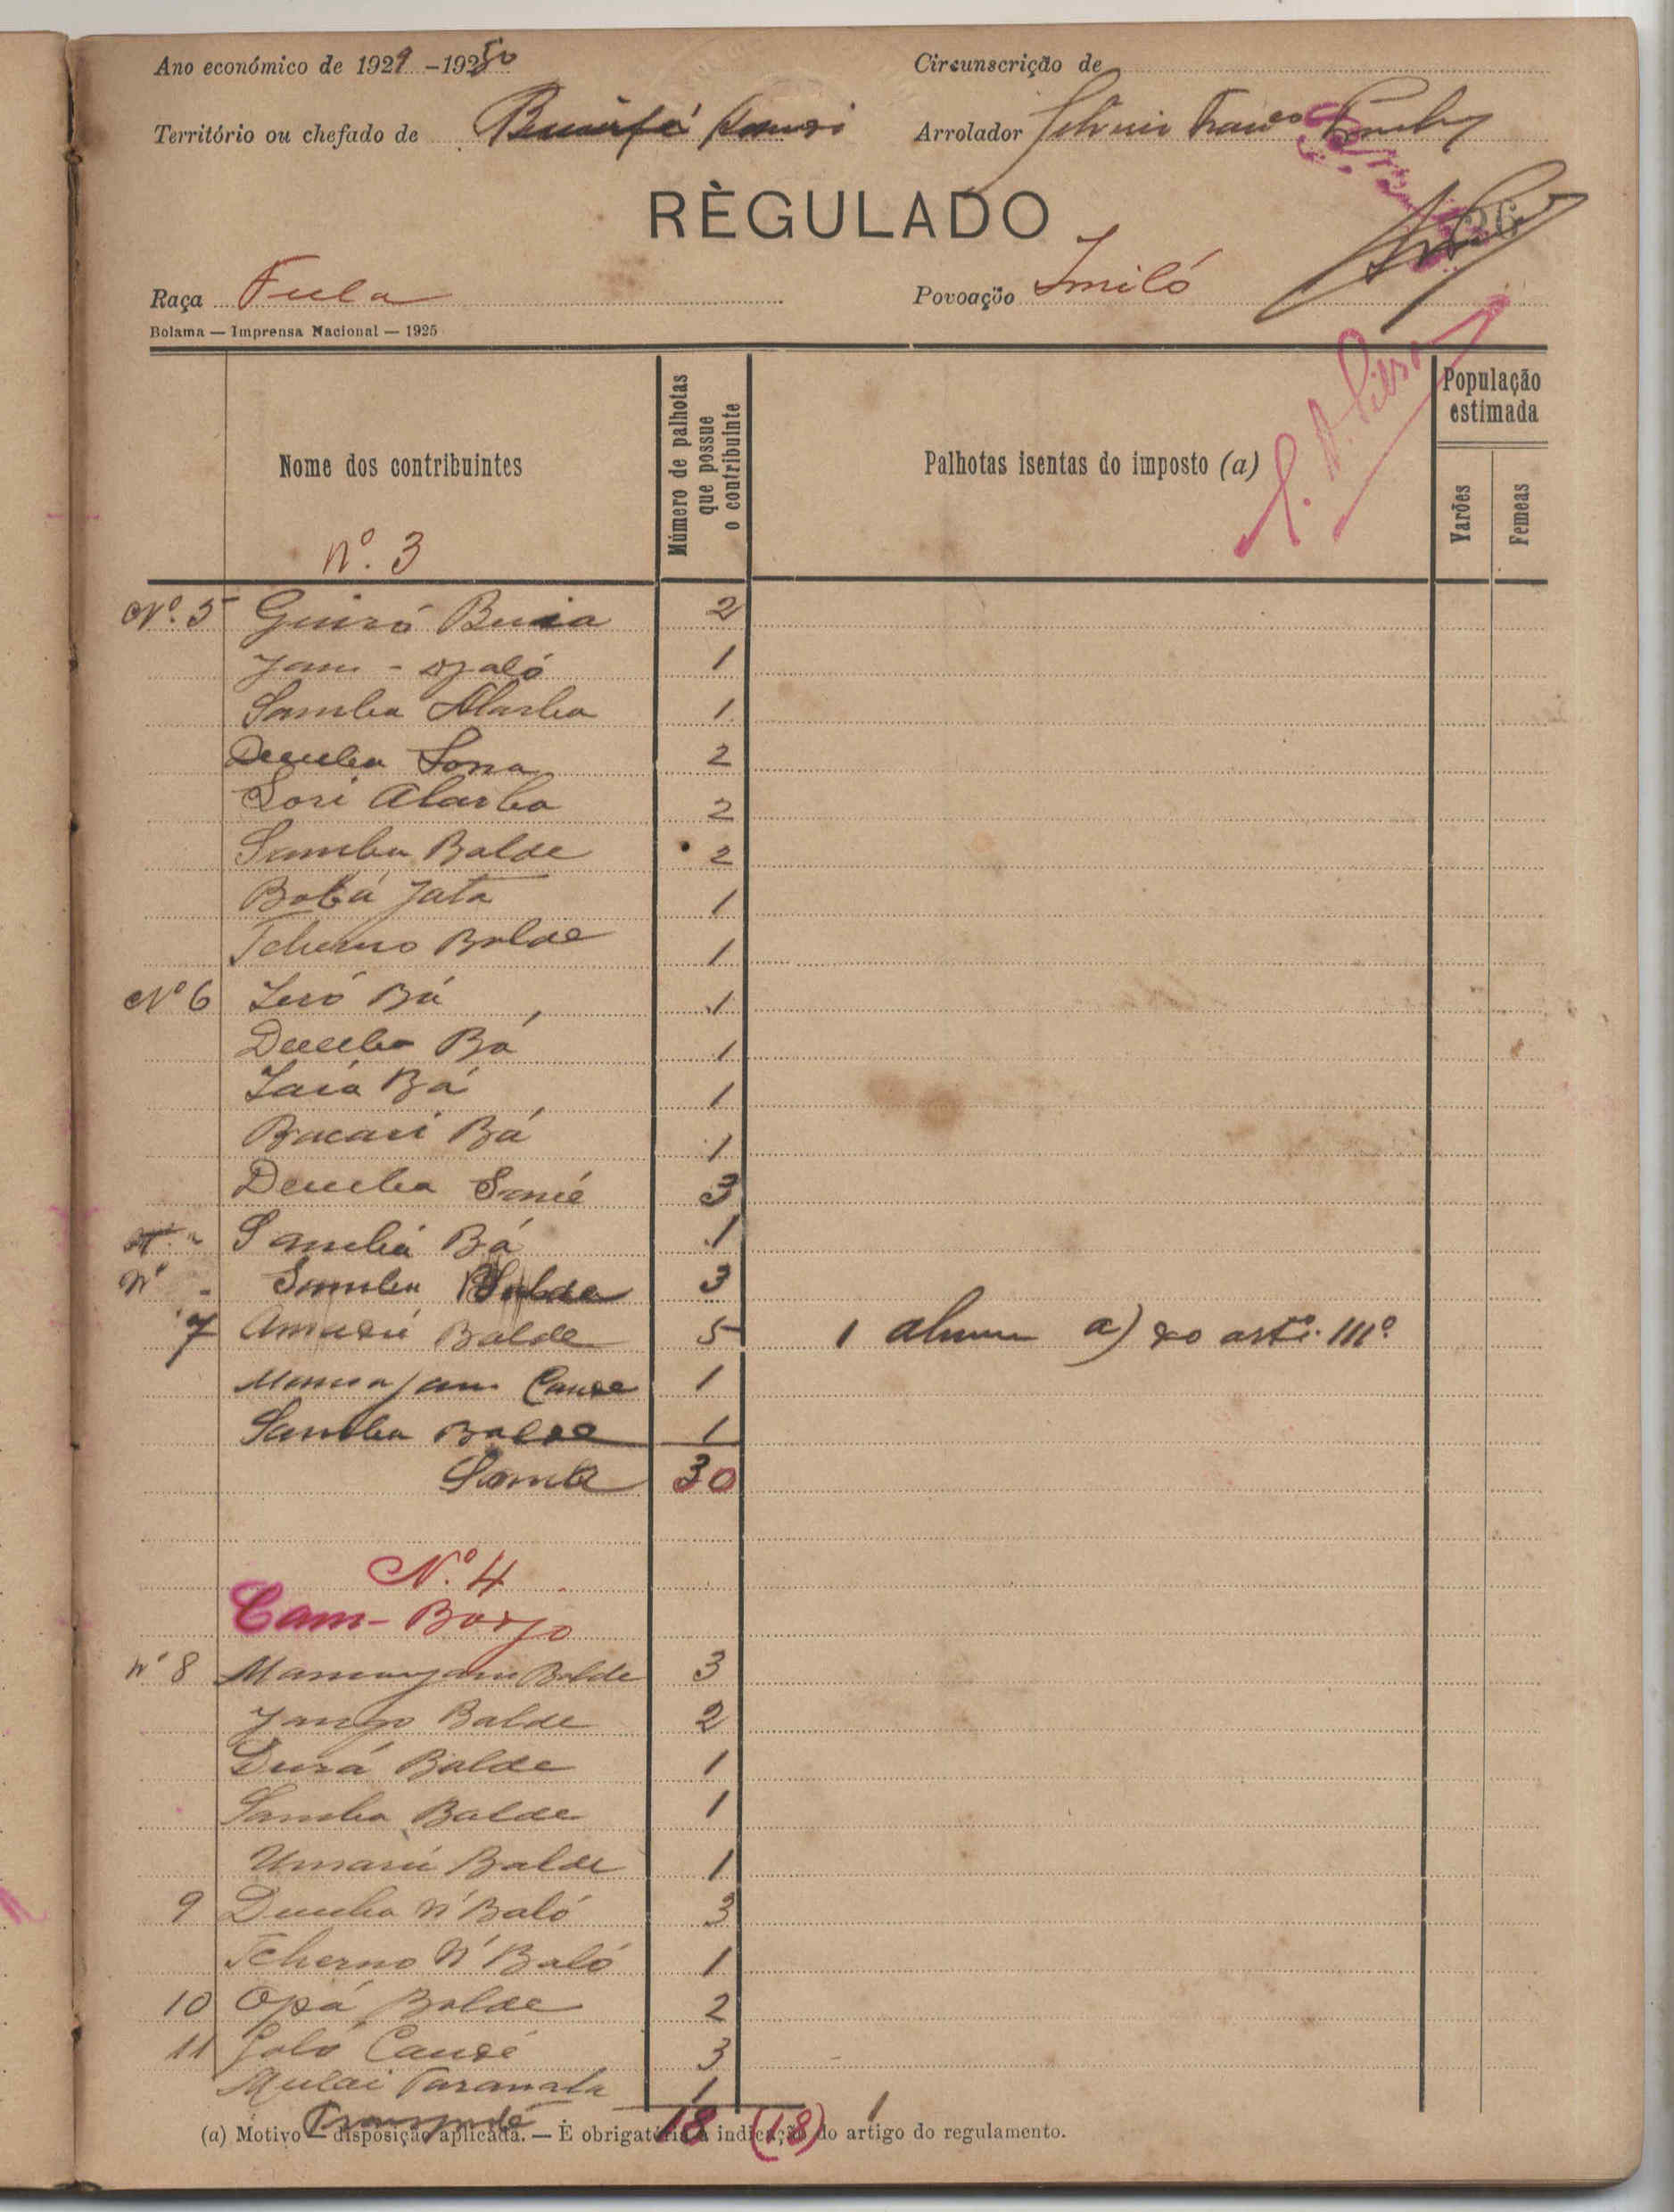 Ano económico de 1929 -1930
Circunscrição de
Território ou chefado de
Arrolador
RÈGULADO
26
Raça Fula
Povoação Imiló
Bolama — Imprensa Nacional — 1925
Nome dos contribuintes
Número de palhotas que possue o contribuinte
Palhotas isentas do imposto (a)
População estimada
Varões
Femeas
nº. 3
Nº. 5 Guiró Buia 2
Jam - djaló 1
Samba Alarba 1
Demba Sona 2
Sori Alarba 2
Samba Balde 2
Bobá Jata 1
Tcherno Balde 1
Nº 6 Ieró Bá 1
Demba Bá 1
Iaia Bá 1
Bacari Bá 1
Demba Sané 3
Samba Bá 1
Nº Samba Balde 3
7 Amadú Balde 5 1 a) do artº. 111º
Cande 1
Samba Balde 1
Soma 30
Nº. 4
Cam-Borjo
nº 8 Mamanjam Balde 3
Balde 2
Durá Balde 1
Samba Balde 1
Umarú Balde 1
9 Demba N'Baló 3
Tcherno N'Baló 1
10 Opá Balde 2
11 Galó Candé 3
Mulai 1
18 (18) 1
(a) Motivo — disposição aplicada. — É obrigatória a indicação do artigo do regulamento.